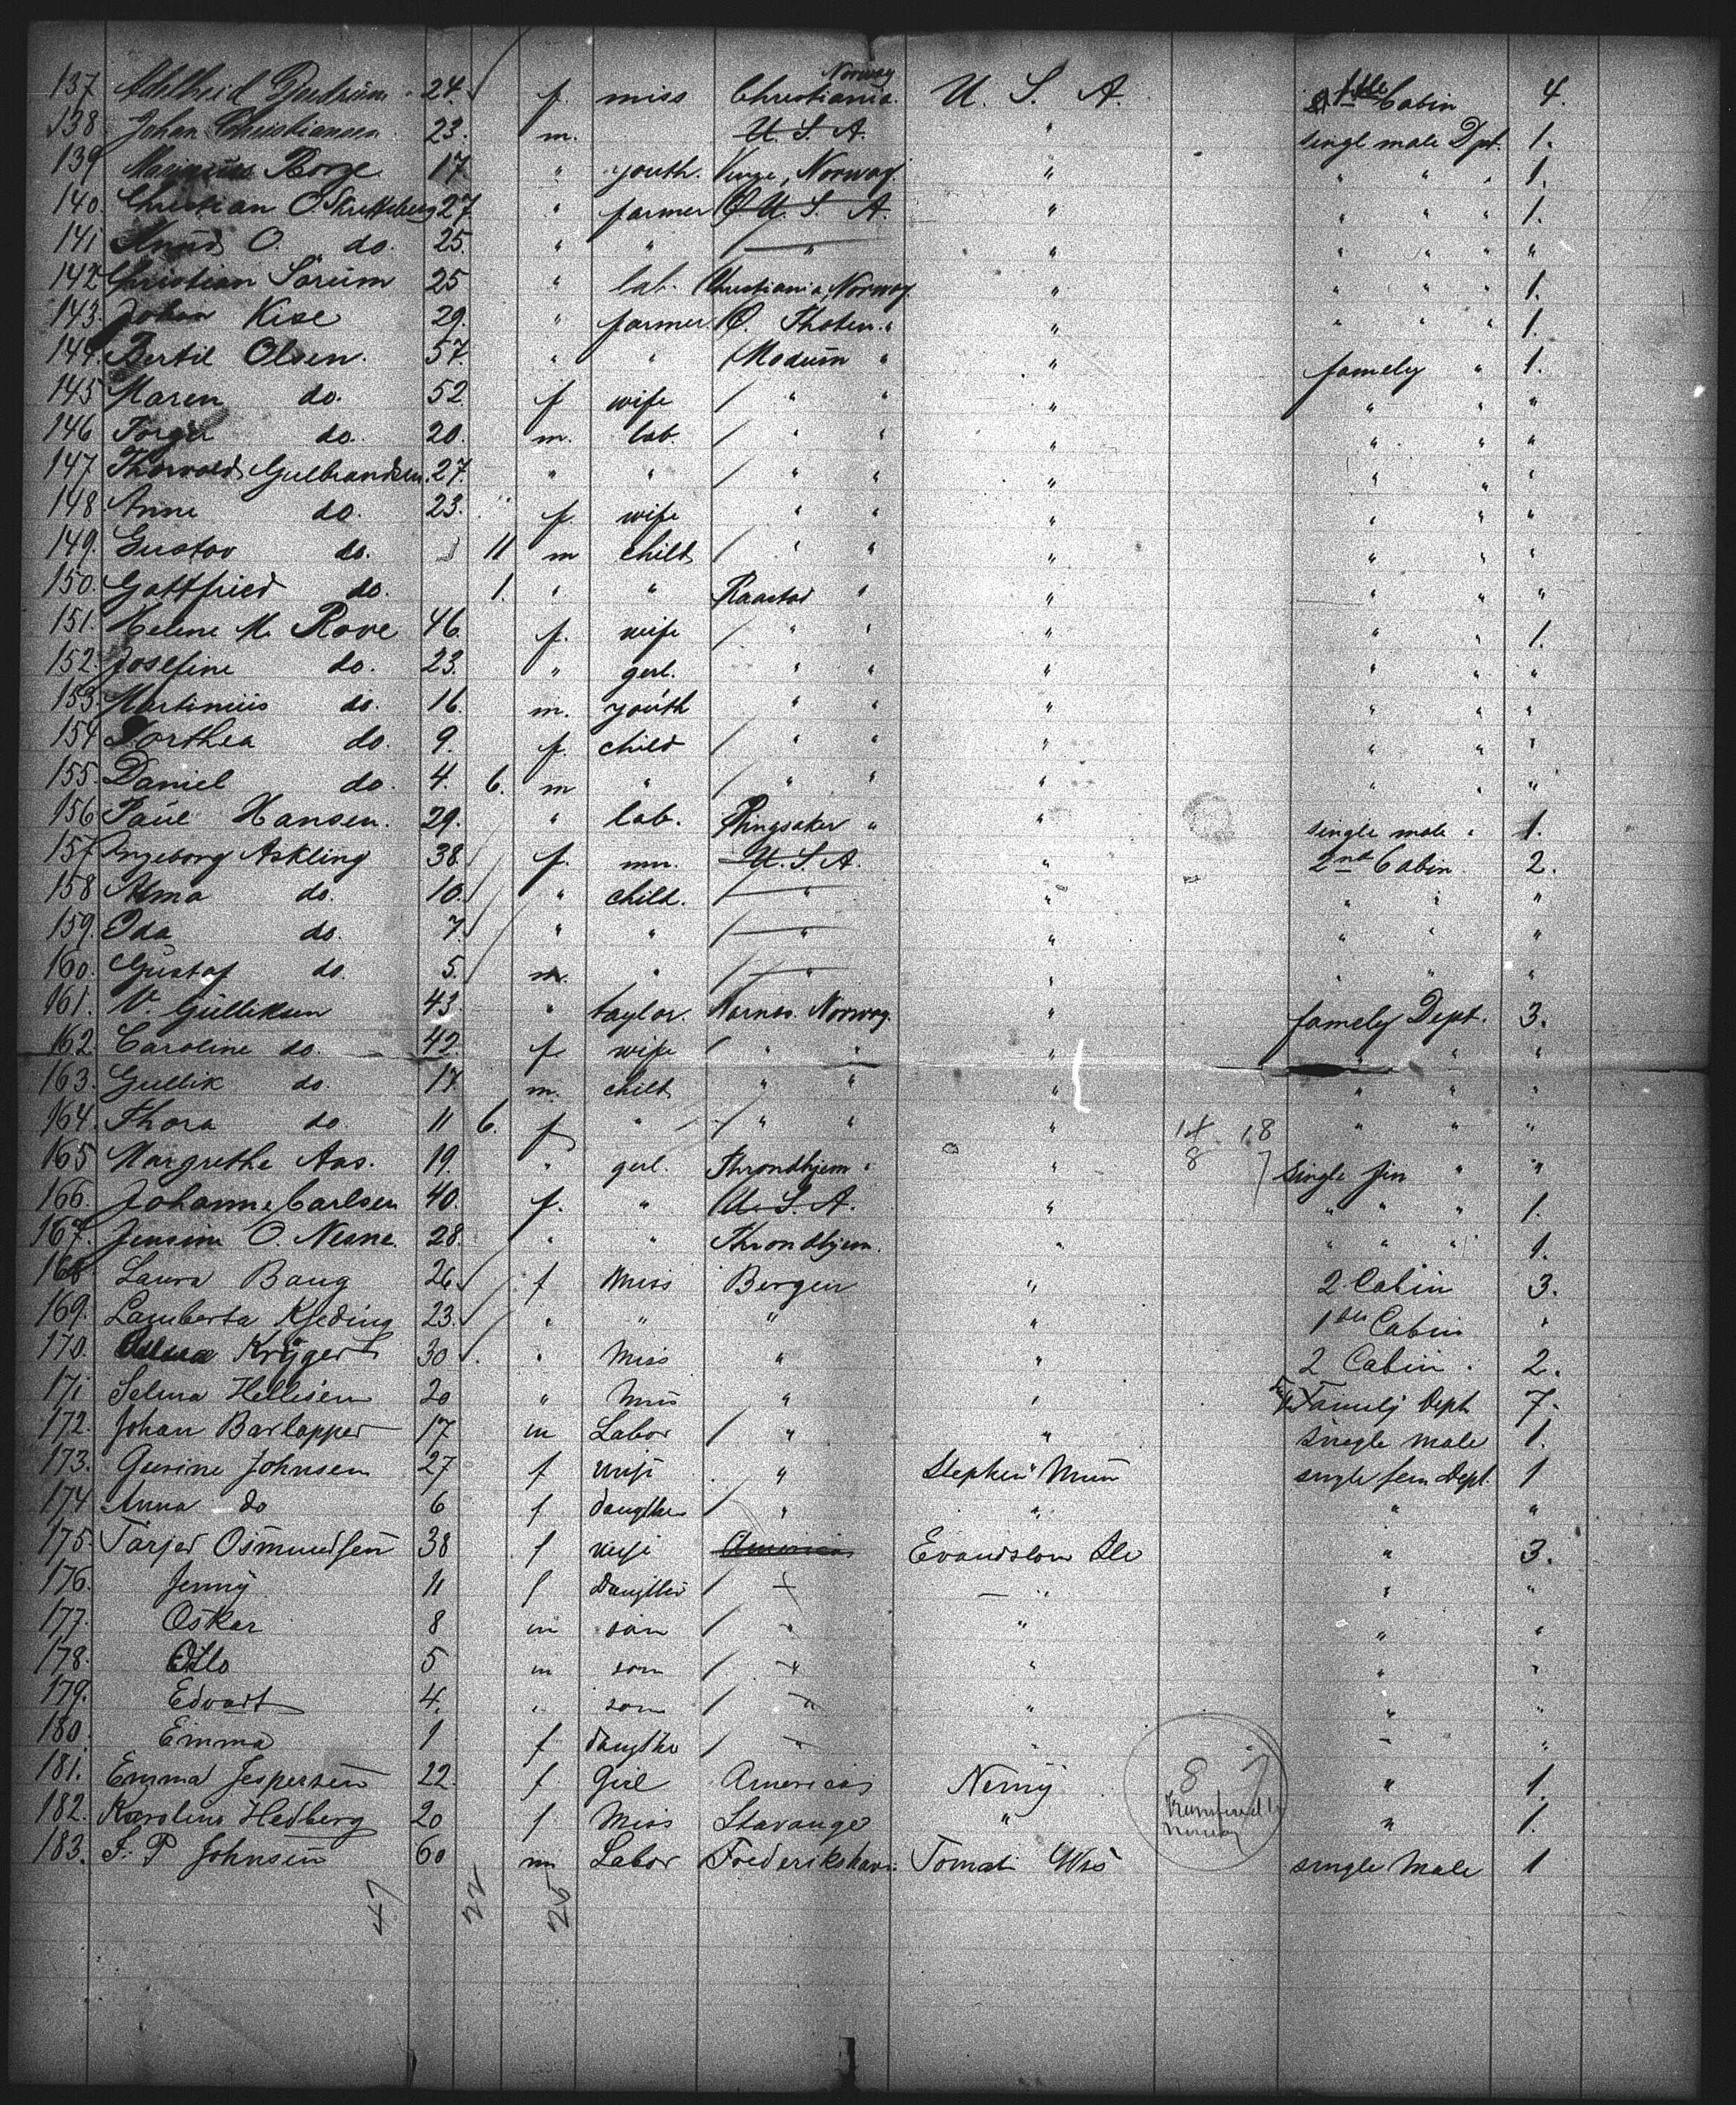 137. Adelheid 24. f. miss Norway Christiania. U. S. A. Cabin 4.
138 Johan Christiansen 23. m. U. S. A. " singl male Dpt. 1.
139 Borge 17. " youth. Norway. " " " " 1.
140. Christian O. 27. " farmer U. S. A. " " " " 1.
141 Knud O. do. 25. " " " " " " " "
142 Christian Sörum 25 " lab. Christiania, Norway. " " " " 1.
143. Johan Kise 29. " farmer. O. Thoten. " " " " " 1.
144. Bertil Olsen. 57. " " Modum " " famely " 1.
145 Maren do. 52. f wife " " " " " "
146 Torger do. 20. m. lab. " " " " " "
147 Thorvald Gulbrandsen. 27. " " " " " " " "
148 Anne do. 23. f. wife " " " " " "
149. Gustav do. 11 m child " " " " " "
150. Gottfried do. 1. " " Raastad " " " " "
151. Helene M. Rove 46. f. wife " " " " " 1.
152. Josefine do. 23. " gerl. " " " " " "
153. Martinius do. 16. m. youth " " " " " "
154 Dorthea do. 9. f. child " " " " " "
155. Daniel do. 4. 6. m " " " " " " "
156 Paul Hansen. 29. " lab. Ringsaker " " single male " 1.
157. Ingeborg Askling 38. f. mrs. U. S. A. " 2nd Cabin 2.
158 Alma do. 10. " child. " " " " "
159. Oda do. 7. " " " " " " "
160. Gustaf do. 5. m. " " " " " "
161. V. Gulliksen 43. " taylor. Norway. " famely Dept. 3.
162 Caroline do. 42. f wife " " " " " "
163. Gullik do. 17. m. child " " " " " "
164. Thora do. 11 6. f " " " " " " "
165 Margrethe Aas. 19. " gerl. Throndhjem " " single fem " "
166. Johanne Carlsen 40. f. " U. S. A. " " " " 1.
167. Jensine O. Nesne. 28. " " Throndhjem. " " " " 1.
168. Laura Baug 26. f Miss Bergen " 2 Cabin 3.
169. Lamberta Kjeding 23. " " " " 1 Cabin "
170. Krÿger 30. " Miss " " 2 Cabin. 2.
171 Selma Hellesen 20 " Miss " " Familj Dept 7.
172. Johan Barlapper 17 m Labor " " single male 1.
173. Gurine Johnsen 27 f wife " Stephen Minn single fem Dept. 1
174 Anna do 6 f daugther " " " "
175. Tarjer Osmundsen 38 f wife America Evandston Ile " 3.
176. Jenny 11 f Daugther " " "
177. Oskar 8 m son " " " "
178. Otto 5 m son " " " "
179. Edvart 4. " son " " " "
180. Emma 1 f daugther " " " "
181. Emma Jespersen 22. f. Girl America Neny " 1.
182. Karolina Hedberg 20 f Miss Stavanger " " 1.
183. S. P Johnsen 60 m Labor Frederikshavn. Tomah Wis single Male 1
47 22 25